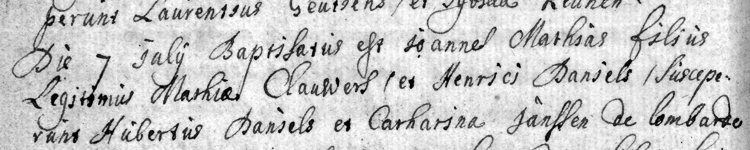 perunt Laurentius Geutsens / et Sybilla Keunen
Die 7 July Baptisatus est Joannes Mathias filius
Legitimus Mathiæ Clauwers / et Henrici Daniels / Suscepe-
runt Hubertus Daniels et Catharina Janssen de Lombarde